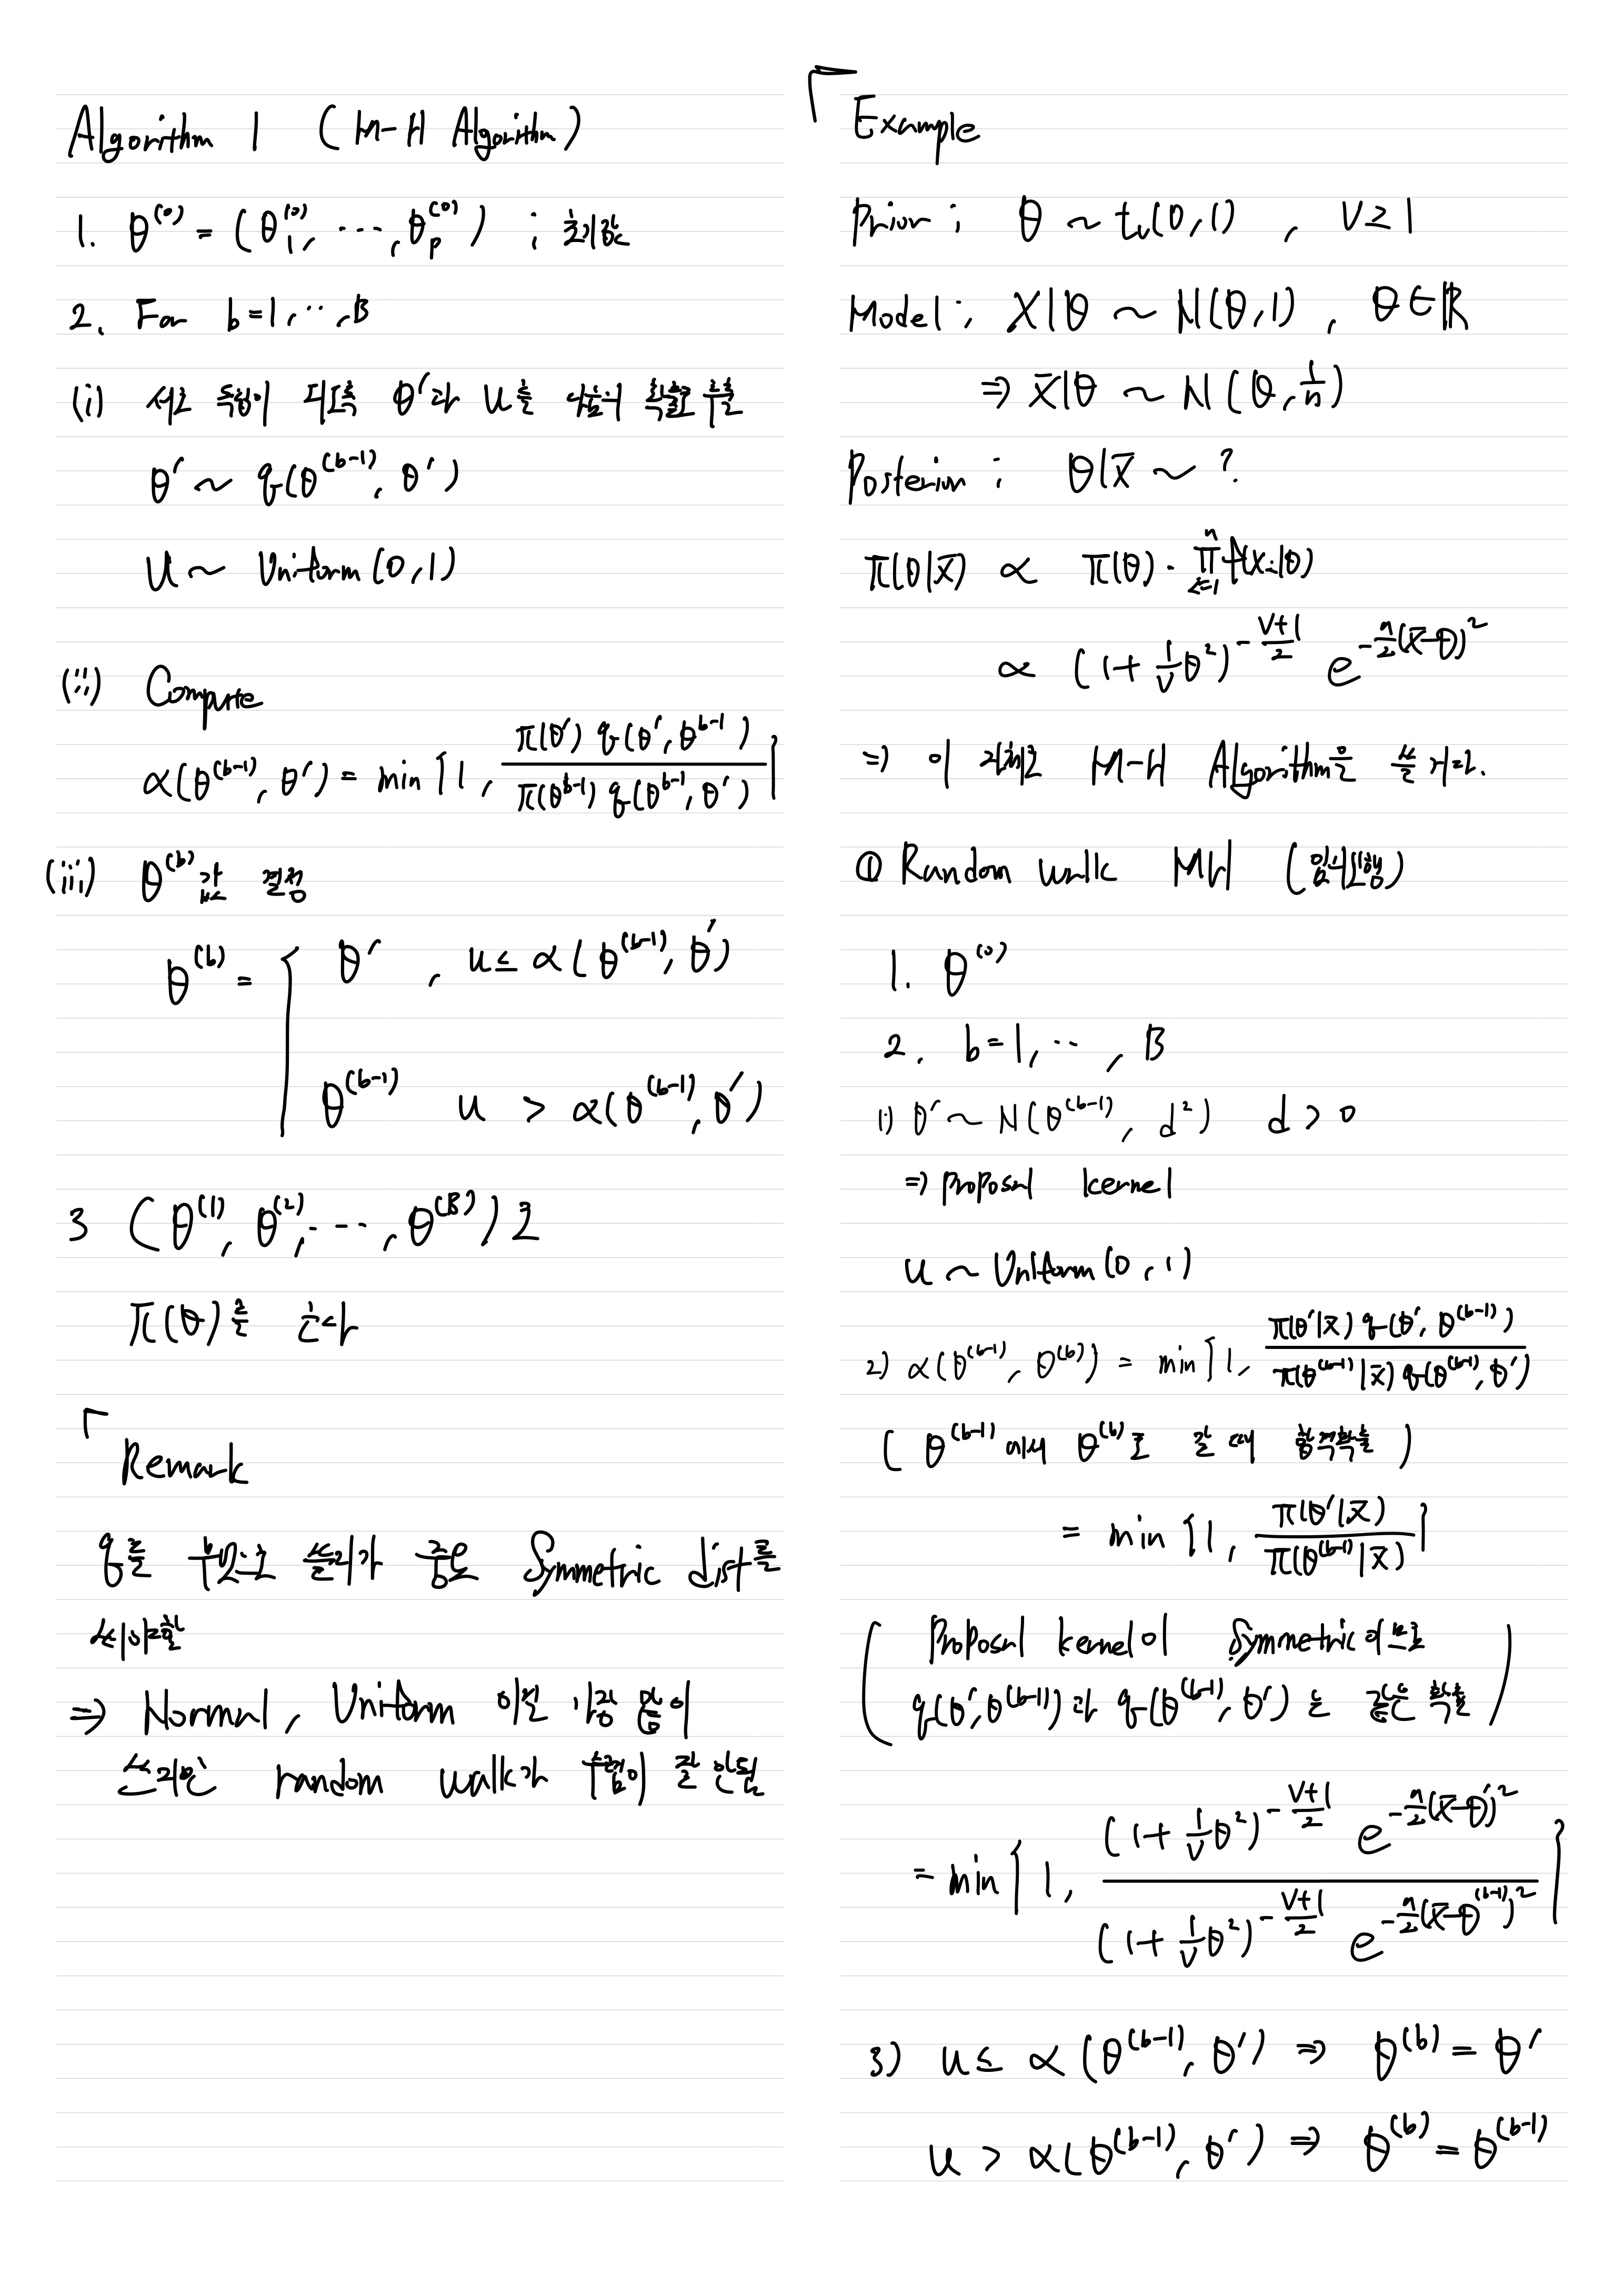 Algorithm 1 (M-H Algorithm)
1. θ^(0) = (θ_1^(0), ⋯, θ_p^(0)) ; 초기값
2. For b=1, ⋯, B
(i) 서로 독립이 되도록 θ′과 u를 다음의 확률로 추출
θ′ ~ q(θ^(b-1), θ′)
u ~ Uniform(0,1)
(ii) Compute
α(θ^(b-1), θ′) = min{1, π(θ′) q(θ′, θ^b-1) / π(θ^b-1) q(θ^b-1, θ′)}
(iii) θ^(b)값 결정
θ^(b) = { θ′ , u ≤ α(θ^(b-1), θ′)
θ^(b-1) u > α(θ^(b-1), θ′)
3 (θ^(1), θ^(2), ⋯, θ^(B))로
π(θ)를 근사
Remark
q를 무엇으로 쓸지가 중요 Symmetric dist를
써야함
⇒ Normal, Uniform 이건 가장 많이
쓰지만 random walk가 수렴이 잘 안됨
Example
Prior ; θ ~ t_ν(0,1) , ν ≥ 1
Model ; X|θ ~ N(θ,1) , θ∈ℝ
⇒ x̄|θ ~ N(θ, 1/n)
Posterior ; θ|x̄ ~ ?
π(θ|x̄) ∝ π(θ) · ∏_{i=1}^n f(x_i|θ)
∝ (1+ 1/ν θ²)^{-(ν+1)/2} e^{-n/2(x̄-θ)²}
⇒ 이 자체로 M-H Algorithm을 쓸 거고.
① Random walk MH (임의보행)
1. θ^(0)
2. b=1, ⋯, B
1) θ′ ~ N(θ^(b-1), d²) d > 0
⇒ proposal kernel
u ~ Uniform(0,1)
2) α(θ^(b-1), θ^(b)) = min{1, π(θ′|x̄) q(θ′, θ^(b-1)) / π(θ^(b-1)|x̄) q(θ^(b-1), θ′)
( θ^(b-1)에서 θ^(b)로 갈 때 합격확률 )
= min{1, π(θ′|x̄) / π(θ^(b-1)|x̄)}
( Proposal kernel이 Symmetric이므로
q(θ′, θ^(b-1))과 q(θ^(b-1), θ′)는 같은 확률 )
= min{1, (1+ 1/ν θ²)^{-(ν+1)/2} e^{-n/2(x̄-θ′)²} / (1+ 1/ν θ²)^{-(ν+1)/2} e^{-n/2(x̄-θ^(b-1))²}}
3) u ≤ α(θ^(b-1), θ′) ⇒ θ^(b) = θ′
u > α(θ^(b-1), θ′) ⇒ θ^(b) = θ^(b-1)